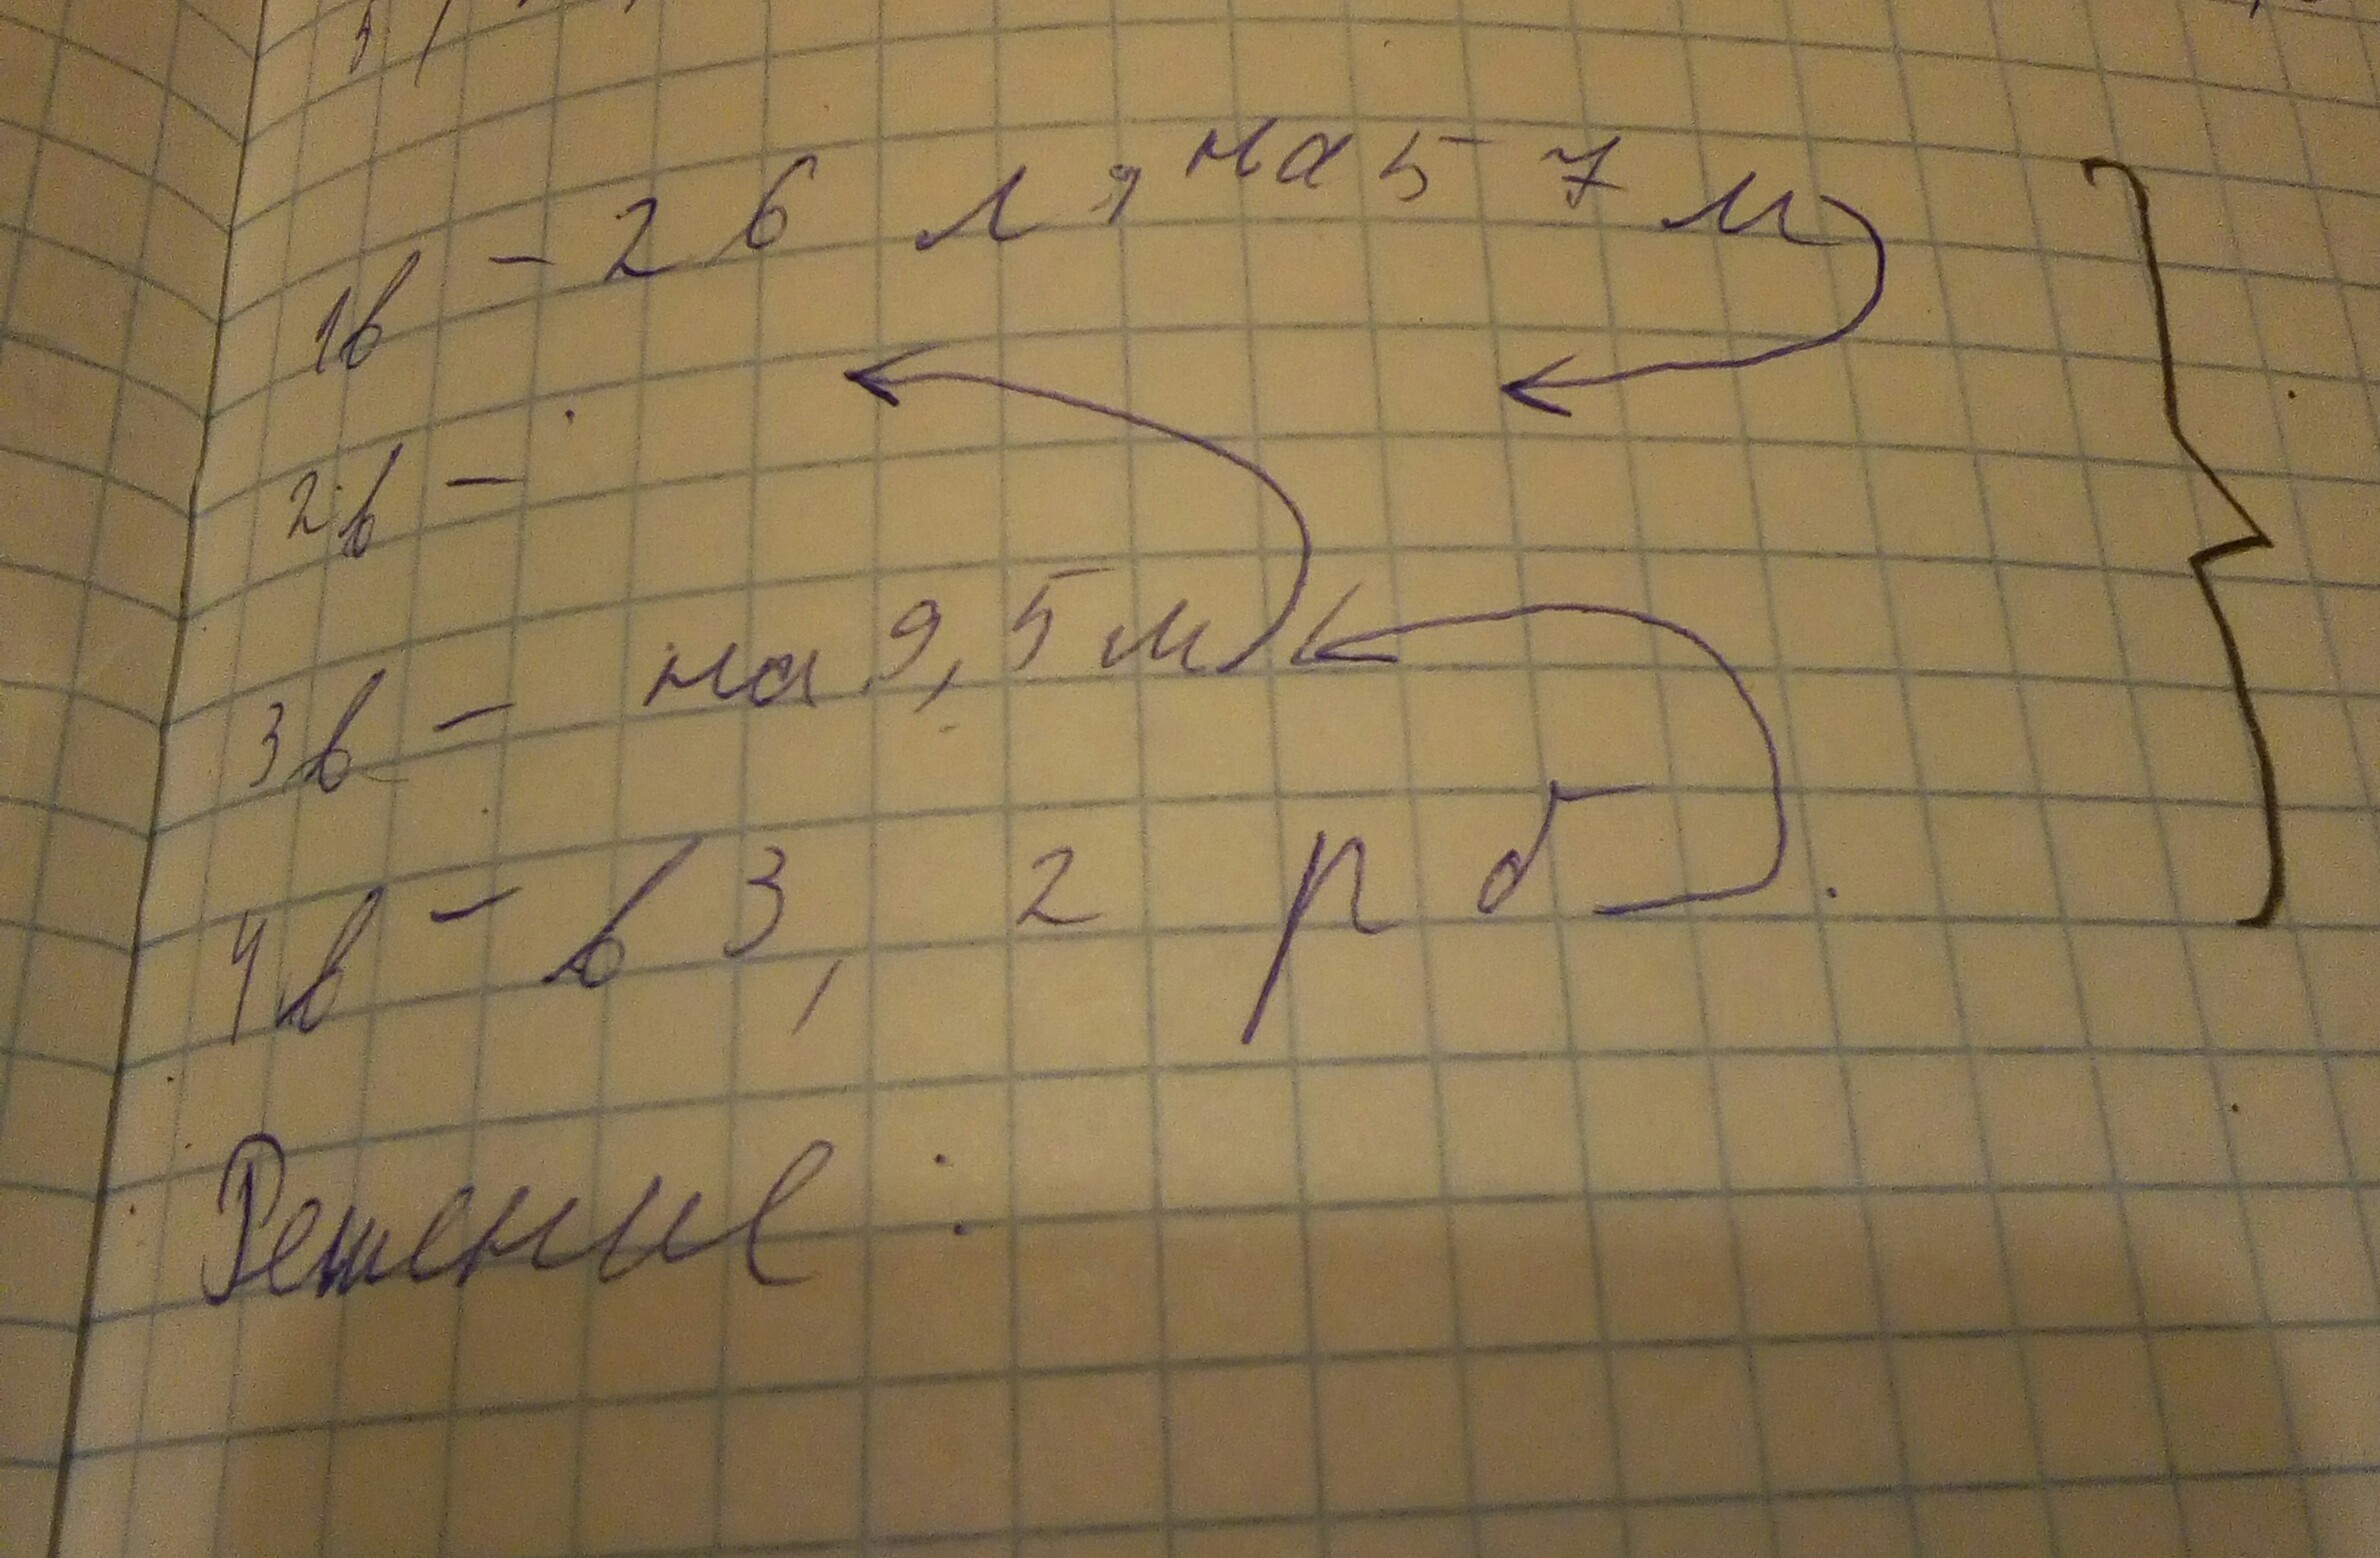 1в - 26 л, на 5 7 м
2в -
3в - на 9,5 м
4в - в 3,2 р б.
Решение: